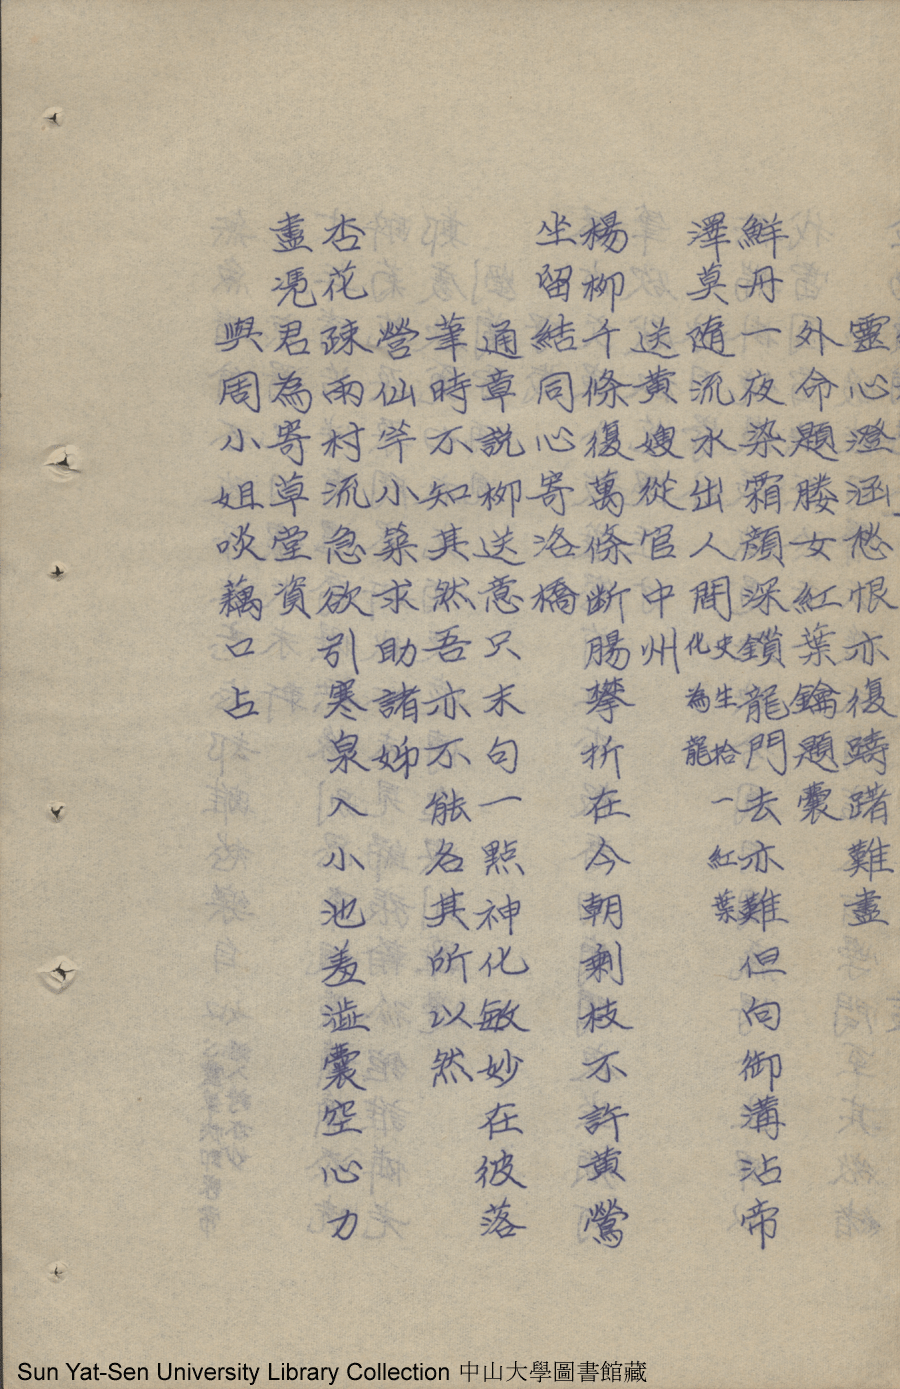 靈心澄涵愁恨亦復躊躇難盡
外命題媵女紅葉鑰題囊
鮮丹一夜染霜顏深鎖龍門去亦難但向御溝沾帝
澤莫隨流水出人間史生拾一紅葉化為龍
送黃嫂從官中州
楊柳千條復萬條斷腸攀折在今朝剩枝不許黃鶯
坐留結同心寄洛橋
通章說柳送意只末句一點神化敏妙在彼落
筆時不知其然吾亦不能名其所以然
營仙竿小築求助諸姊
杏花疎雨村流急欲引寒泉入小池羞澁囊空心力
盡凴君為寄草堂資
與周小姐啖藕口占
Sun Yat-Sen University Library Collection 中山大學圖書館藏